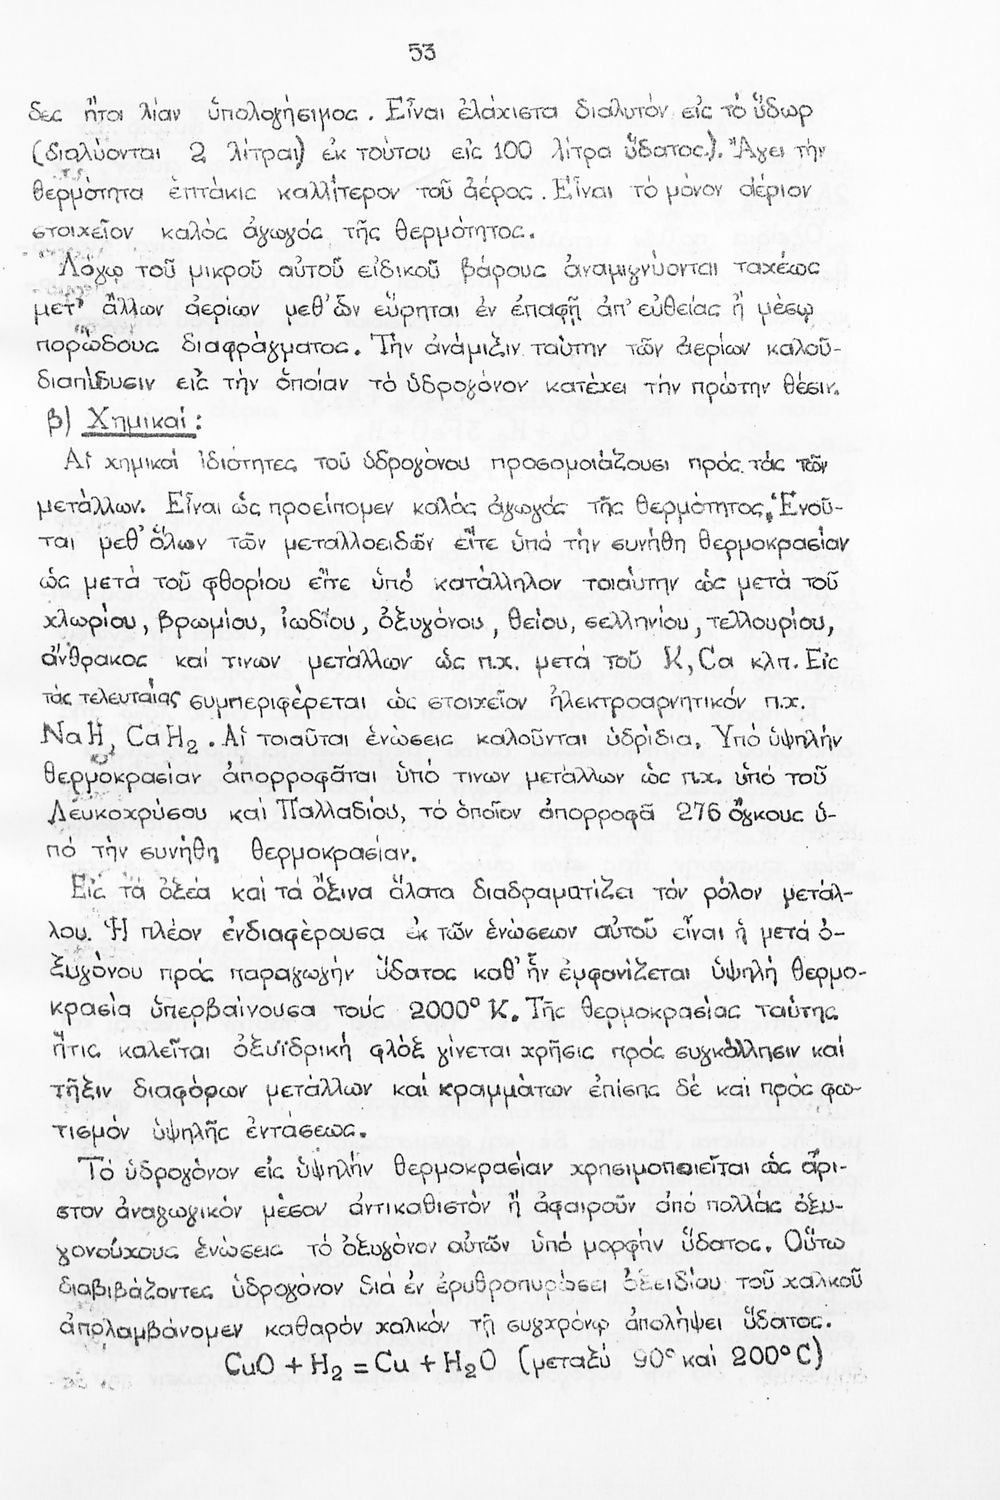 53
δες ἤτοι λίαν ὑπολογήσιμος. Εἶναι ἐλάχιστα διαλυτόν εἰς τό ὕδωρ
(διαλύονται 2 λίτραι) ἐκ τούτου εἰς 100 λίτρα ὕδατος.). Ἄγει τήν
θερμότητα ἑπτάκις καλλίτερον τοῦ ἀέρος. Εἶναι τό μόνον ἀέριον
στοιχεῖον καλός ἀγωγός τῆς θερμότητος.
Λόγῳ τοῦ μικροῦ αὐτοῦ εἰδικοῦ βάρους ἀναμιγνύονται ταχέως
μετ' ἄλλων ἀερίων μεθ' ὧν εὕρηται ἐν ἐπαφῇ ἀπ' εὐθείας ἤ μέσῳ
πορώδους διαφράγματος. Τήν ἀνάμιξιν ταύτην τῶν ἀερίων καλοῦ-
διαπίδυσιν εἰς τήν ὁποίαν τό ὑδρογόνον κατέχει τήν πρώτην θέσιν.
β) Χημικαί:
Αἱ χημικαί ἰδιότητες τοῦ ὑδρογόνου προσομοιάζουσι πρός τάς τῶν
μετάλλων. Εἶναι ὡς προείπομεν καλός ἀγωγός τῆς θερμότητος, Ἑνοῦ-
ται μεθ' ὅλων τῶν μεταλλοειδῶν εἴτε ὑπό τήν συνήθη θερμοκρασίαν
ὡς μετά τοῦ φθορίου εἴτε ὑπό κατάλληλον τοιαύτην ὡς μετά τοῦ
χλωρίου, βρωμίου, ἰωδίου, ὀξυγόνου, θείου, σελληνίου, τελλουρίου,
ἄνθρακος καί τινων μετάλλων ὡς π.χ. μετά τοῦ K, Ca κλπ. Εἰς
τάς τελευταίας συμπεριφέρεται ὡς στοιχεῖον ἠλεκτροαρνητικόν π.χ.
NaH, CaH₂. Αἱ τοιαῦται ἑνώσεις καλοῦνται ὑδρίδια. Ὑπό ὑψηλήν
θερμοκρασίαν ἀπορροφᾶται ὑπό τινων μετάλλων ὡς π.χ. ὑπό τοῦ
Λευκοχρύσου καί Παλλαδίου, τό ὁποῖον ἀπορροφᾶ 276 ὄγκους ὑ-
πό τήν συνήθη θερμοκρασίαν.
Εἰς τά ὀξέα καί τά ὄξινα ἅλατα διαδραματίζει τόν ρόλον μετάλ-
λου. Ἡ πλέον ἐνδιαφέρουσα ἐκ τῶν ἑνώσεων αὐτοῦ εἶναι ἡ μετά ὀ-
ξυγόνου πρός παραγωγήν ὕδατος καθ' ἥν ἐμφανίζεται ὑψηλή θερμο-
κρασία ὑπερβαίνουσα τούς 2000° K. Τῆς θερμοκρασίας ταύτης
ἥτις καλεῖται ὀξυϊδρική φλόξ γίνεται χρῆσις πρός συγκόλλησιν καί
τῆξιν διαφόρων μετάλλων καί κραμμάτων ἐπίσης δέ καί πρός φω-
τισμόν ὑψηλῆς ἐντάσεως.
Τό ὑδρογόνον εἰς ὑψηλήν θερμοκρασίαν χρησιμοποιεῖται ὡς ἄρι-
στον ἀναγωγικόν μέσον ἀντικαθιστόν ἤ ἀφαιροῦν ἀπό πολλάς ὀξυ-
γονούχους ἑνώσεις τό ὀξυγόνον αὐτῶν ὑπό μορφήν ὕδατος. Οὕτω
διαβιβάζοντες ὑδρογόνον διά ἐν ἐρυθροπυρώσει ὀξειδίου τοῦ χαλκοῦ
ἀπολαμβάνομεν καθαρόν χαλκόν τῇ συγχρόνῳ ἀπολήψει ὕδατος.
CuO + H₂ = Cu + H₂O (μεταξύ 90° καί 200° C)